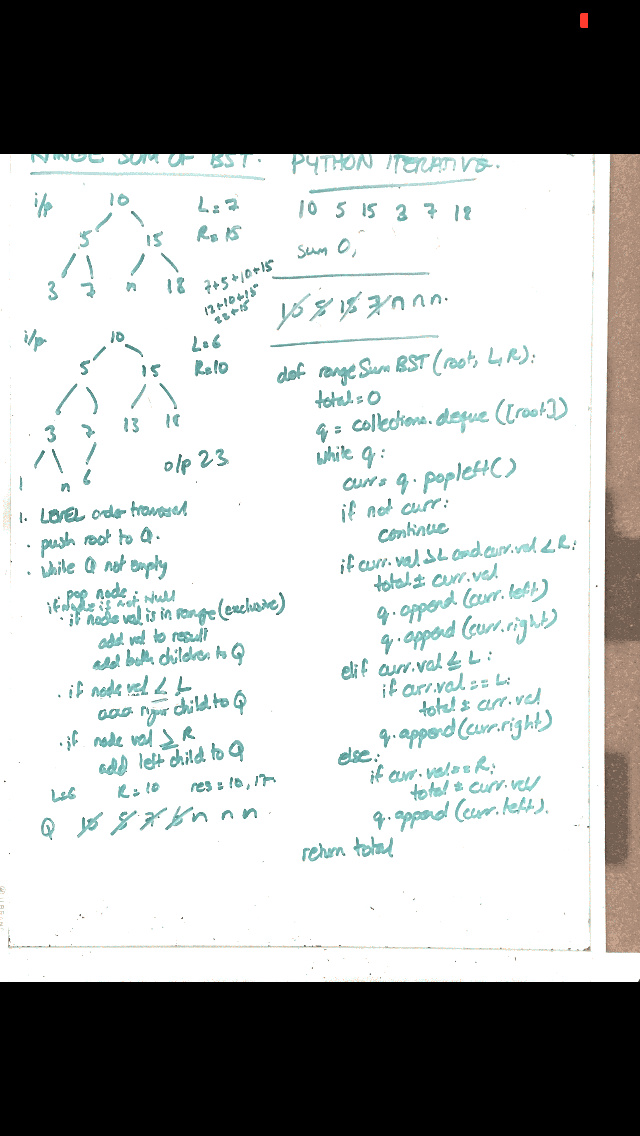 RANGE SUM OF BST.
i/p
10
L = 7
R = 15
5 15
3 7 n 18
7+5+10+15
12+10+15
22+15
i/p
10
L = 6
R = 10
5 15
3 7 13 18
1 n 6
o/p 23
1. LEVEL order traversal
. push root to Q.
. while Q not empty
pop node ;
if Node is not Null
. if node val is in range (exclusive)
add val to result
add both children to Q
. if node val ≤ L
right child to Q
. if node val ≥ R
add left child to Q
L=6 R = 10 res = 10, 17
Q 10 5 7 6 n n n
PYTHON ITERATIVE.
10 5 15 3 7 18
sum 0,
10 5 15 7 n n n.
def rangeSumBST (root, L, R):
total = 0
q = collections.deque ([root])
while q :
curr = q. popleft()
if not curr:
continue
if curr.val > L and curr.val < R:
total ± curr.val
q. append (curr.left)
q. append (curr.right)
elif curr.val ≤ L :
if curr.val == L:
total ± curr.val
q. append (curr.right)
else:
if curr.val == R:
total ± curr.val
q. append (curr.left).
return total